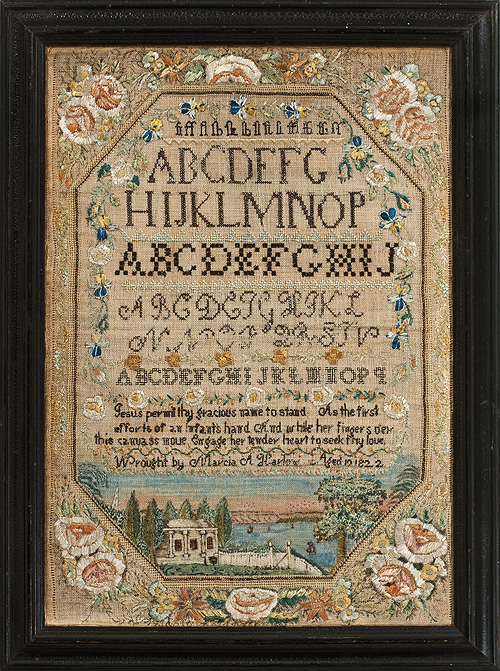 ABCDEFG
HIJKLMNOP
ABCDEFGHIJ
ABCDEFGHIKL
MNOPQRSTV
ABCDEFGHIJKLMNOPQ
Jesus permit thy gracious name to stand As the first
efforts of an infants hand And while her fingers oer
this canvass move Engage her tender heart to seek thy love
Wrought by Marcia A Harlow Aged 10 1822